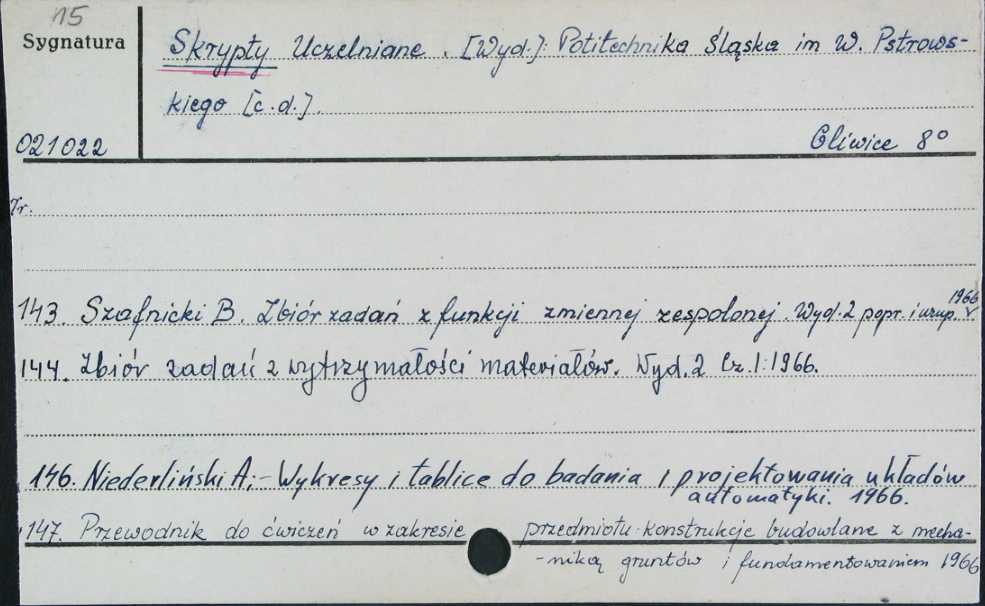 15
Sygnatura
Skrypty Uczelniane. [Wyd.]: Politechnika Śląska im W. Pstrows-
kiego [c.d.].
021022
Gliwice 8°
Nr.
1966
143. Szafnicki B. Zbiór zadań z funkcji zmiennej zespolonej. Wyd. 2 popr. i uzup. v
144. Zbiór zadań z wytrzymałości materiałów. Wyd. 2 Cz. I: 1966.
146. Niederliński A; - Wykresy i tablice do badania i projektowania układów
automatyki. 1966.
147. Przewodnik do ćwiczeń w zakresie przedmiotu konstrukcje budowlane z mecha-
-niką gruntów i fundamentowaniem 1966